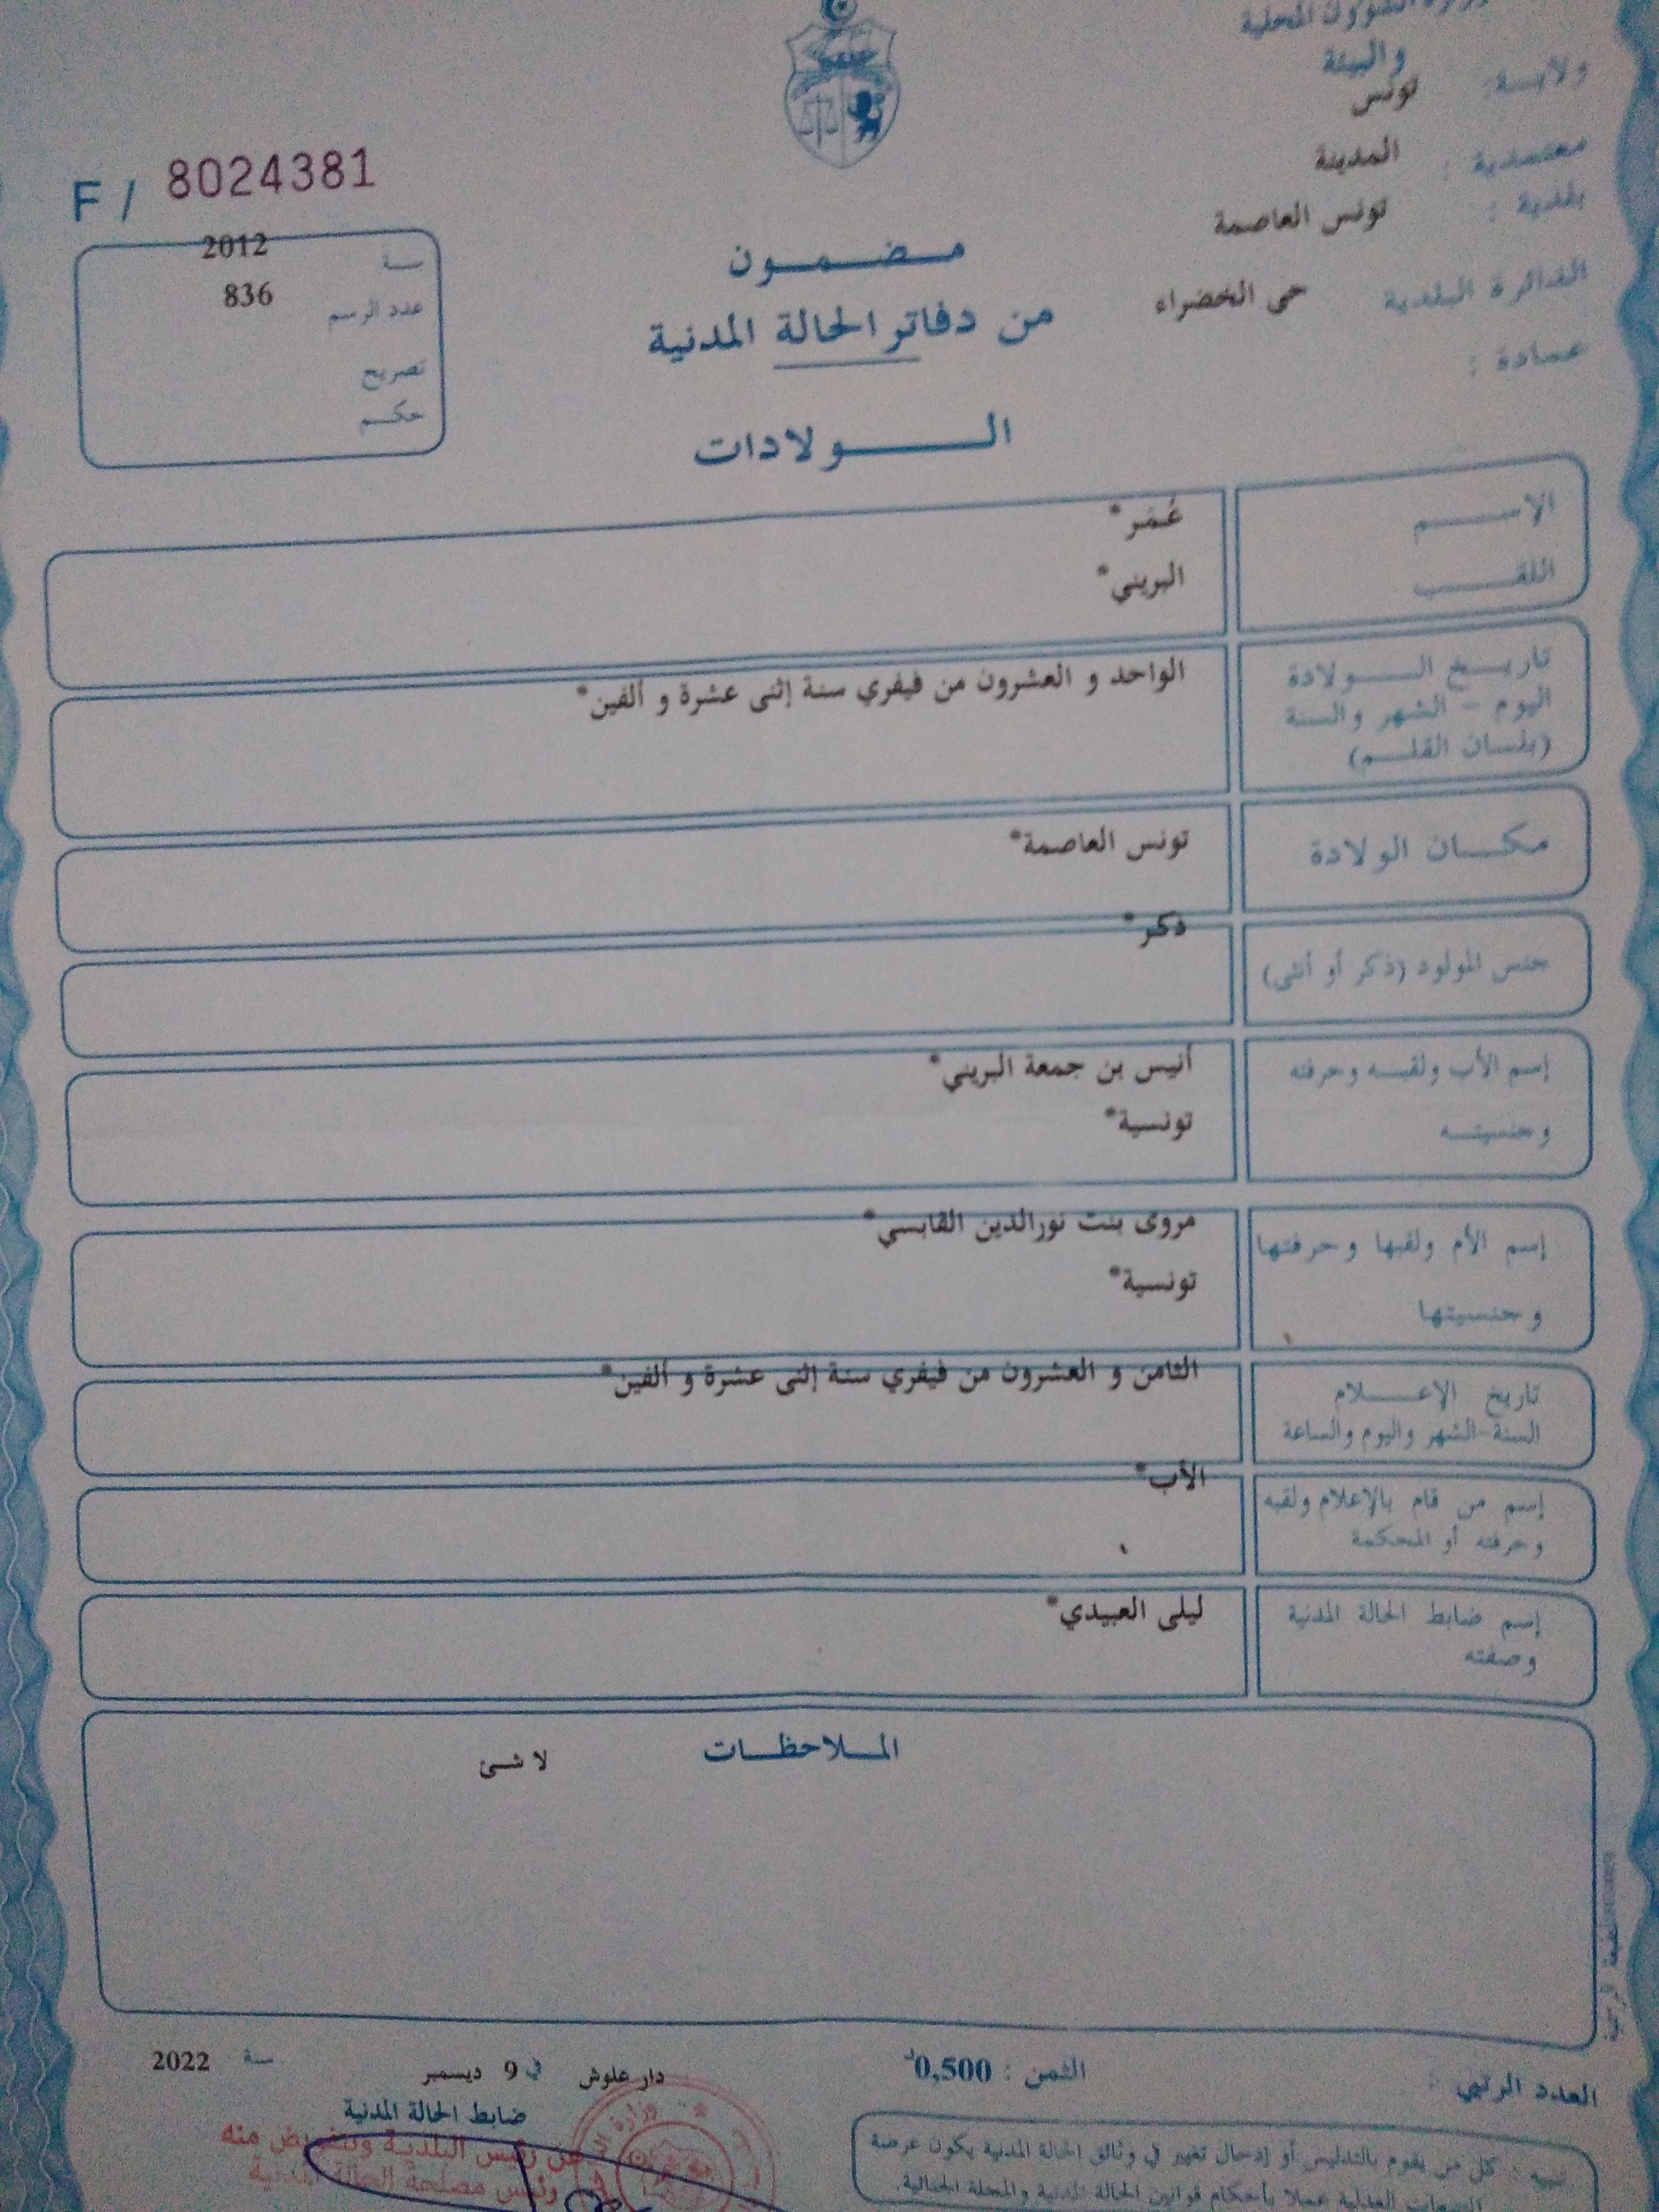 وزارة الشؤون المحلية
والبيئة
ولايـــة: تونس
معتمدية : المدينة
بلدية : تونس العاصمة
الدائرة البلدية حى الخضراء
عمادة :
F / 8024381
سنة 2012
عدد الرسم 836
تصريح
حكم
مضمون
من دفاتر الحالة المدنية
الولادات
الاسم عُمَر*
اللقب البريني*
تاريخ الولادة الواحد و العشرون من فيفري سنة إثنى عشرة و ألفين*
اليوم - الشهر والسنة
(بلسان القلم)
مكان الولادة تونس العاصمة*
جنس المولود (ذكر أو أنثى) ذكر*
إسم الأب ولقبه وحرفته أنيس بن جمعة البريني*
وجنسيته تونسية*
إسم الأم ولقبها وحرفتها مروى بنت نورالدين القابسي*
وجنسيتها تونسية*
تاريخ الإعلام الثامن و العشرون من فيفري سنة إثنى عشرة و ألفين*
السنة-الشهر واليوم والساعة
إسم من قام بالإعلام ولقبه الأب*
وحرفته أو المحكمة
إسم ضابط الحالة المدنية ليلى العبيدي*
وصفته
الملاحظات لا شئ
العدد الرتبي :
الثمن : 0,500د
دار علوش في 9 ديسمبر سنة 2022
ضابط الحالة المدنية
عن رئيس البلدية وبتفويض منه
ورئيس مصلحة الحالة المدنية
تنبيه : كل من يقوم بالتدليس أو إدخال تغيير في وثائق الحالة المدنية يكون عرضة
للتتبعات العدلية عملا بأحكام قوانين الحالة المدنية والمجلة الجنائية.